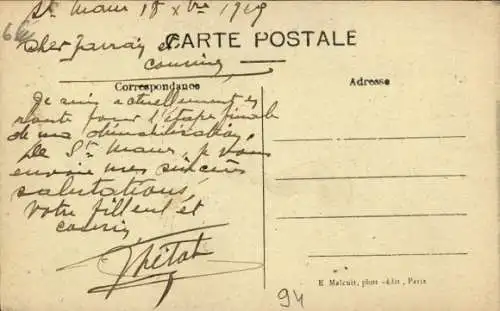 St Maur 18 Xbre 1919
Cher parrain et
cousine
CARTE POSTALE
Correspondance
Adresse
Je suis actuellement en
route pour l'étape finale
de ma démobilisation,
De St Maur, je vous
envoie mes sincères
salutations,
Votre filleul et
cousin
E Malcuit, phot-édit, Paris
94